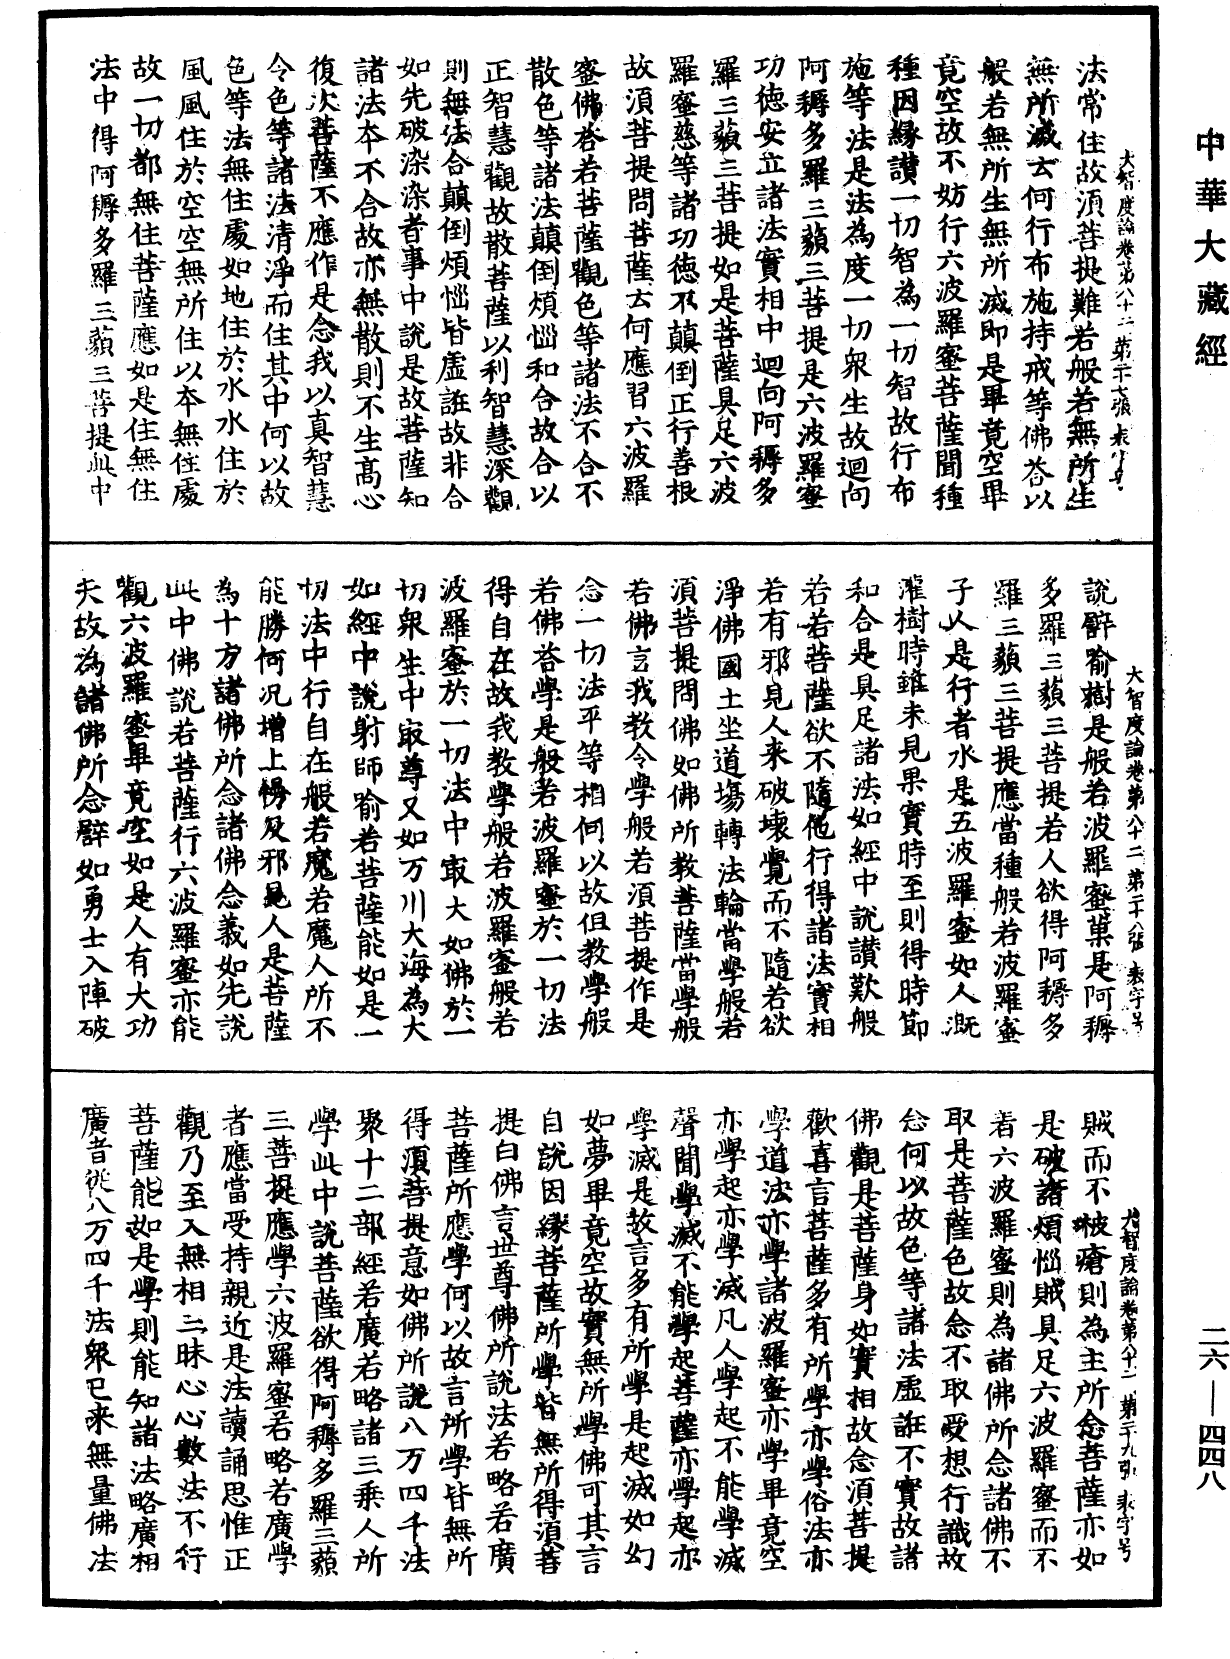 中華大藏經
大智度論卷第八十二 第二十七張 表字号
法常住故須菩提難若般若無所生
無所滅云何行布施持戒等佛荅以
般若無所生無所滅即是畢竟空畢
竟空故不妨行六波羅蜜菩薩聞種
種因緣讃一切智為一切智故行布
施等法是法為度一切衆生故迴向
阿耨多羅三藐三菩提是六波羅蜜
功德安立諸法實相中迴向阿耨多
羅三藐三菩提如是菩薩具足六波
羅蜜慈等諸功德不顛倒正行善根
故須菩提問菩薩云何應習六波羅
蜜佛荅若菩薩觀色等諸法不合不
散色等諸法顛倒煩惱和合故合以
正智慧觀故散菩薩以利智慧深觀
則無法合顛倒煩惱皆虛誑故非合
如先破染染者事中說是故菩薩知
諸法本不合故亦無散則不生高心
復次菩薩不應作是念我以真智慧
令色等諸法清淨而住其中何以故
色等法無住處如地住於水水住於
風風住於空空無所住以本無住處
故一切都無住菩薩應如是住無住
法中得阿耨多羅三藐三菩提此中
大智度論卷第八十二 第二十八張 表字号
說譬喻樹是般若波羅蜜菓是阿耨
多羅三藐三菩提若人欲得阿耨多
羅三藐三菩提應當種般若波羅蜜
子人是行者水是五波羅蜜如人溉
灌樹時雖未見果實時至則得時節
和合是具足諸法如經中說讃歎般
若若菩薩欲不隨他行得諸法實相
若有邪見人来破壞覺而不隨若欲
淨佛國土坐道場轉法輪當學般若
須菩提問佛如佛所教菩薩當學般
若佛言我教令學般若須菩提作是
念一切法平等相何以故但教學般
若佛荅學是般若波羅蜜於一切法
得自在故我教學般若波羅蜜般若
波羅蜜於一切法中冣大如佛於一
切衆生中冣尊又如万川大海為大
如經中說射師喻若菩薩能如是一
切法中行自在般若魔若魔人所不
能勝何况增上慢及邪見人是菩薩
為十方諸佛所念諸佛念義如先說
此中佛說若菩薩行六波羅蜜亦能
觀六波羅蜜畢竟空如是人有大功
夫故為諸佛所念譬如勇士入陣破
大智度論卷第八十二 第二十九張 表字号
賊而不被瘡則為主所念菩薩亦如
是破諸煩惱賊具足六波羅蜜而不
着六波羅蜜則為諸佛所念諸佛不
取是菩薩色故念不取受想行識故
念何以故色等諸法虛誑不實故諸
佛觀是菩薩身如實相故念須菩提
歡喜言菩薩多有所學亦學俗法亦
學道法亦學諸波羅蜜亦學畢竟空
亦學起亦學滅凡人學起不能學滅
聲聞學滅不能學起菩薩亦學起亦
學滅是故言多有所學是起滅如幻
如夢畢竟空故實無所學佛可其言
自說因緣菩薩所學皆無所得須菩
提白佛言世尊佛所說法若略若廣
菩薩所應學何以故言所學皆無所
得須菩提意如佛所說八万四千法
聚十二部經若廣若略諸三乘人所
學此中說菩薩欲得阿耨多羅三藐
三菩提應學六波羅蜜若略若廣學
者應當受持親近是法讀誦思惟正
觀乃至入無相三昧心心數法不行
菩薩能如是學則能知諸法略廣相
廣者從八万四千法衆已来無量佛法
二六—四四八